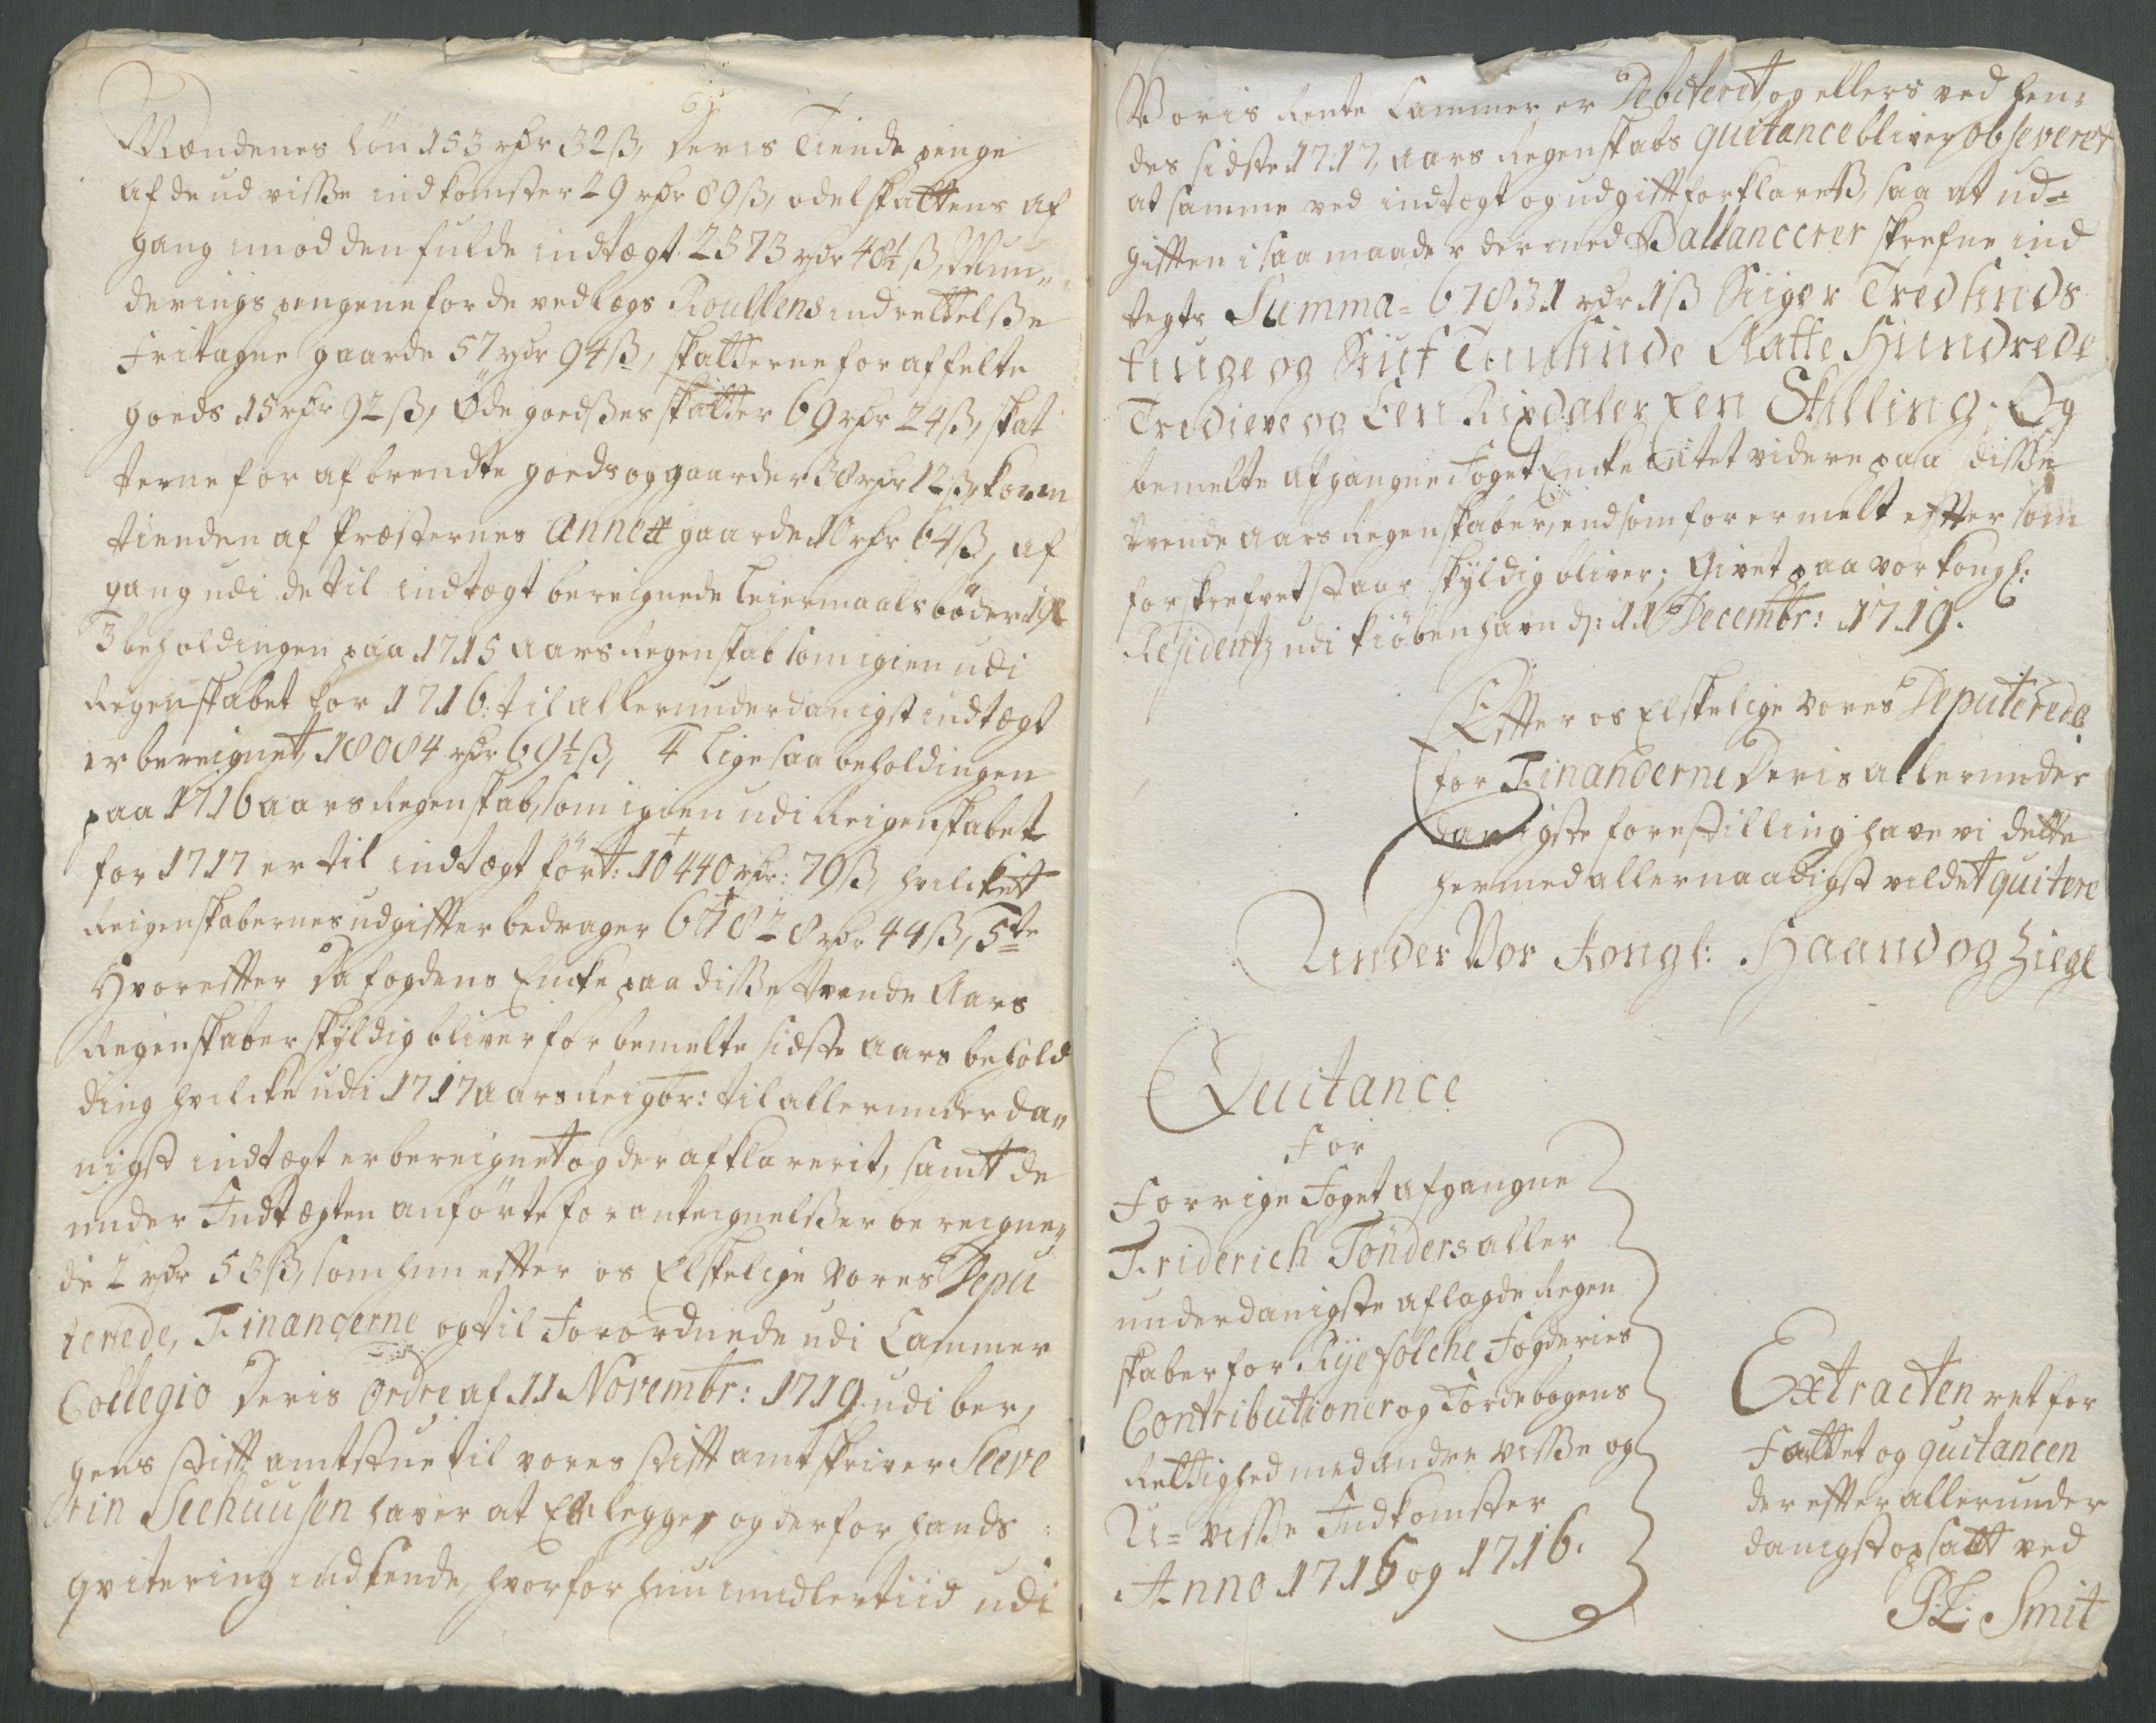 Mændenes løn 153 rdr 32 ß, Deris Tiende penge
af de uvisse indkomster 29 rdr 89 ß, odelskattens af
gang imod den fulde indtægt 2373 rdr 48½ ß, Mun-
derings pengene for de ved lægs Roullens indrettelsse
Fritagne gaarde 57 rdr 94 ß, skatterne for affelte
goeds 15 rdr 92 ß, Øde goedsses skatter 69 rdr 24 ß, skat
terne for afbrendte goeds og gaarder 38 rdr 12 ß, korn
tienden af Præsternes Annex gaarde 10 rdr 64 ß, af
gang udi de til indtægt bereignede Leiermaals bøder 198
3 beholdingen paa 1715 aars Regenskab som igien udi
Regenskabet for 1716: til allerunderdanigst indtægt
er bereignet 18084 rdr 69½ ß, 4 Lige saa beholdingen
paa 1716 aars Regenskab, som igien udi Reigenskabet
for 1717 er til indtægt ført: 10440 rdr: 79 ß, hvilcket
Reigenskabernes udgifter bedrager 67828 rdr 44 ß, 5te
Hvorefter da fogdens Encke paa disse tvende Aars
Regenskaber skyldig bliver for bemelte sidste aars behold
ding hvilcke udi 1717 aars Reigsk: til allerunderda-
nigst indtægt er bereignet og der afklarerit, samt de
under Indtægten anførte for anteignelsser bereigne-
de 2 rdr 53 ß, som hun efter os Elskelige Vores Depu
terede, Financerne og til Forordnede udi Cammer
Collegio Deris Ordre af 11 Novembr: 1719 udi Ber,
gens stift amtstue til vores stift amtskriver Seve
rin Seehuusen haver at Erlegge og derfor hands
qvitering indsende, hvorfor hun imidlertiid udi
Voris Rente Cammer er Debiterit og ellers ved hen-
des sidste 1717 aars Regenskabs quitance bliver observeret
at samme ved indtægt og udgift forklareß, saa at ud-
giften i saa maader dermed Ballancerer skrefne ind
tegts Summa = 67831 rdr 1 ß Siiger Tredsinds
tiuge og Siuf Tuusinde Aatte Hundrede
Tredieve og Een Rixdaler Een Skilling; Og
bemelte afgangne Foget Encke intet videre paa disse
tvende aars Regenskaber, end som forermelt efter som
forskrefvet staar skyldig bliver; Givet paa vor kongl:
Residentz udi Kiøbenhavn d: 11 Decembr: 1719.
Efter os Elskelige Vores Deputerede
for Financerne Deris allerunder
danigste forestilling have vi dette
hermed allernaadigst vildet quitere
Under Vor Kongl: Haand og Ziegl
Quitance
For
Forrige Foget afgangne
Friderich Tønders aller
underdanigste aflagde Regen
skaber for Ryefølche Fogderies
Contributioner og Jordebogens
Rettighed med andre Visse og
U= visse Indkomster
Anno 1715 og 1716.
Extracten ret for
Fattet og quitancen
der efter allerunder
danigst opsatt ved
P: L: Smit